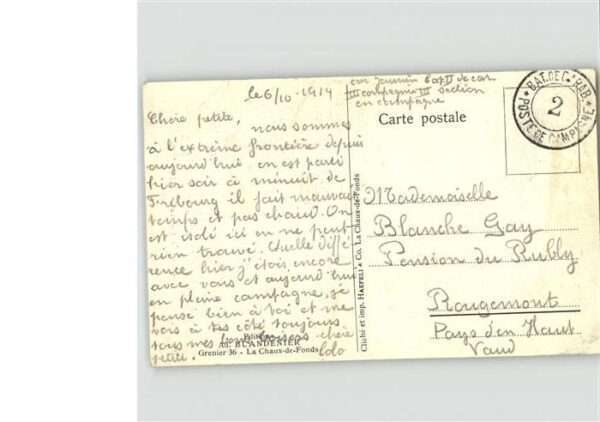 le 6/10 - 1914
Chère petite,
nous sommes
à l'extrême frontière depuis
aujourd'hui on est parti
hier soir à minuit de
Fribourg il fait mauvais
temps et pas chaud. On
est isolé ici on ne peut
rien trouvé. Quelle diffé
rence hier j'étois encore
avec vous et aujourd'hui
en pleine campagne, je
pense bien à toi et me
vois à tes côté toujours
tous mes baisers chère
petite. lolo
Editeur
Ad. BLANDENIER
Grenier 36 - La Chaux-de-Fonds
Cliché et imp. HAEFELI & Co. La Chaux-de-Fonds
car Jaunin bat II de car
III compagnie III section
en campagne
Carte postale
BAT. DE CARAB.
2
POSTE DE CAMPAGNE
Mademoiselle
Blanche Gay
Pension du Rubly
Rougemont
Pays d'en Haut
Vaud